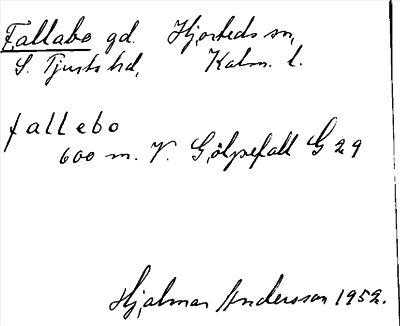 Fallabo gd. Hjorteds sn,
S. Tjusts hd, Kalm. l.
fallebo
600 m. V. Gölpefall G 29
Hjalmar Andersson 1952.